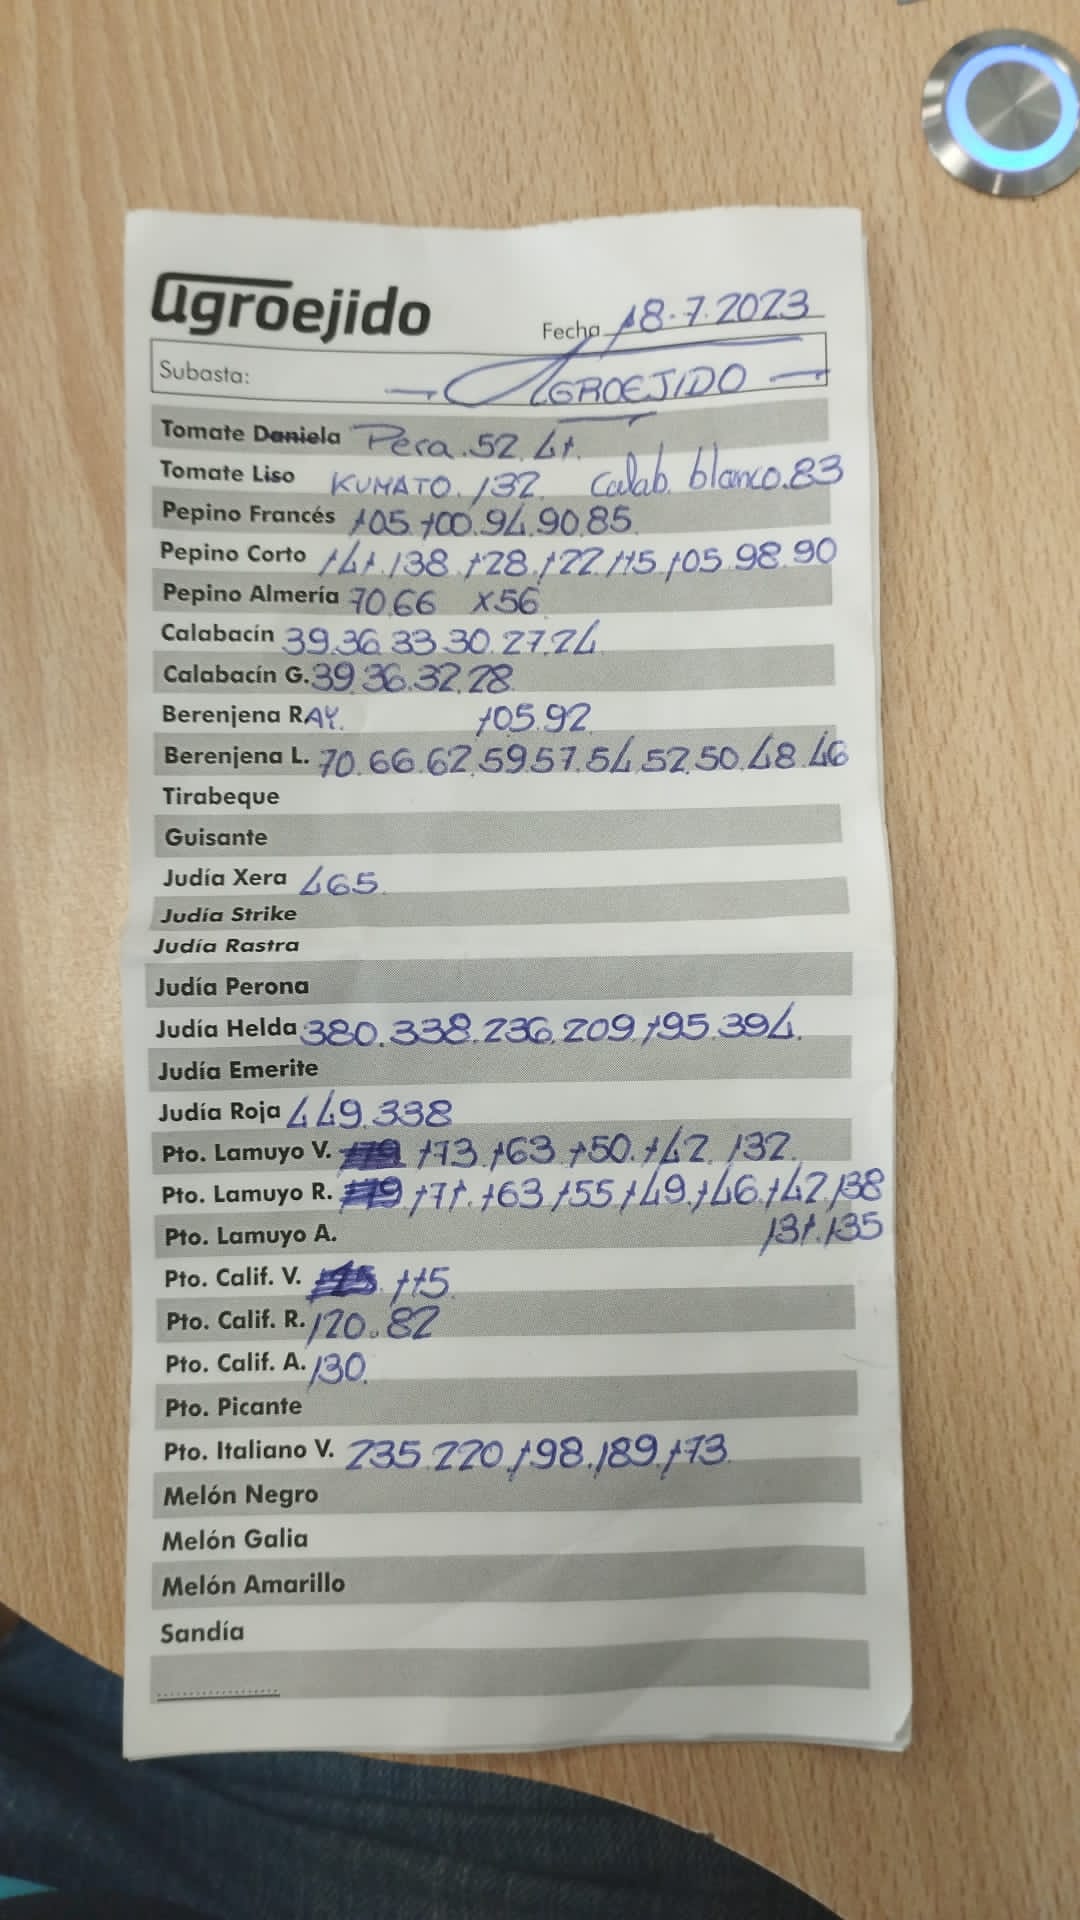 agroejido
Fecha 18.7.2023
Subasta: AGROEJIDO
Tomate Daniela Pera.52.41.
Tomate Liso KUMATO.132. Calab. blanco.83
Pepino Francés 105.100.94.90.85.
Pepino Corto 141.138.128.122.115.105.98.90
Pepino Almería 70.66 x56
Calabacín 39.36.33.30.27.24
Calabacín G. 39.36.32.28
Berenjena RAY. 105.92
Berenjena L. 70.66.62.59.57.54.52.50.48.46
Tirabeque
Guisante
Judía Xera 465.
Judía Strike
Judía Rastra
Judía Perona
Judía Helda 380.338.236.209.195.394.
Judía Emerite
Judía Roja 449.338
Pto. Lamuyo V. 173.163.150.142.132.
Pto. Lamuyo R. 171.163.155.149.146.142.138
Pto. Lamuyo A. 131.135
Pto. Calif. V. 115.
Pto. Calif. R. 120.82
Pto. Calif. A. 130.
Pto. Picante
Pto. Italiano V. 235.220.198.189.173.
Melón Negro
Melón Galia
Melón Amarillo
Sandía